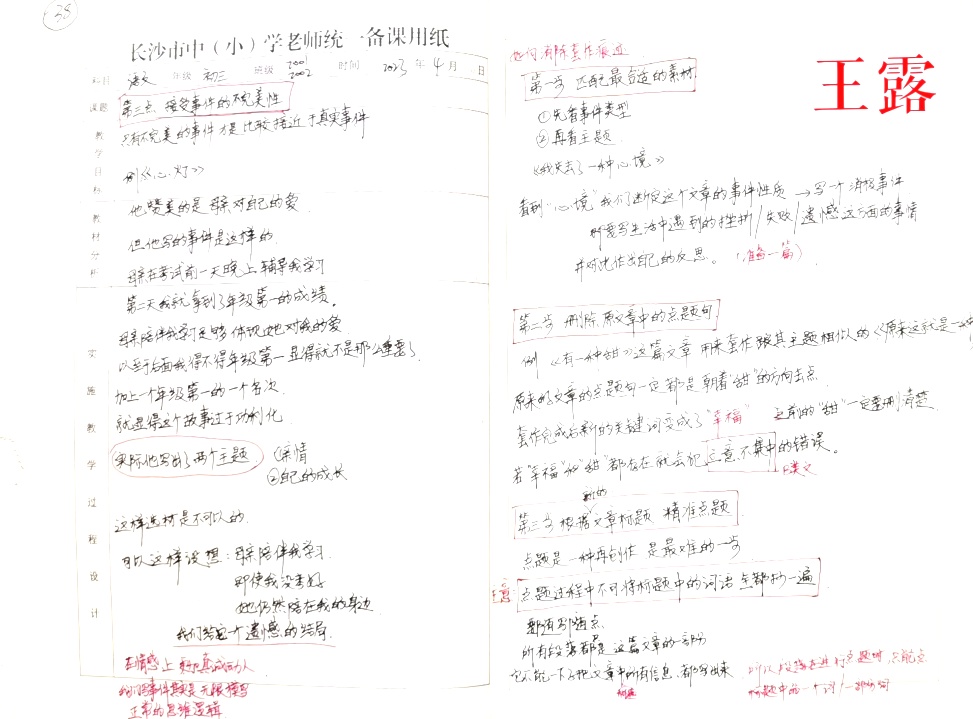 38
长沙市中（小）学老师统一备课用纸
科目 语文 年级 初三 班级 2001 2002 时间 2023 年 4 月 日
课题
第三点 接受事件的不完美性
只有不完美的事件才是比较接近于真实事件
教学目标
例《心灯》
他赞美的是母亲对自己的爱
但他写的事件是这样的
教材分析
母亲在考试前一天晚上辅导我学习
第二天我就拿到了年级第一的成绩。
母亲陪伴我学习足够体现她对我的爱
以至于后面我得不得年级第一显得就不是那么重要了。
加上一个年级第一的一个名次
就显得这个故事过于功利化
实施教学过程设计
实际他写出了两个主题
①亲情
②自己的成长
这样选材是不可以的
可以这样设想：母亲陪伴我学习
即使我没考好
她仍然陪在我的身边
我们给它一个遗憾的结局
在情感上 真诚动人
我们写事件其实是无限模写
正常的思维逻辑
如何消除套作痕迹
王露
第一步 匹配最合适的素材
①先看事件类型
②再看主题
《我失去了一种心境》
看到“心境”我们断定这个文章的事件性质 → 写一个消极事件
所要写生活中遇到的挫折/失败/遗憾这方面的事情
并对此作出自己的反思。（准备一篇）
第二步 删除原文章中的点题句
例《有一种甜》这篇文章 用来套作跟其主题相似的《原来这就是一
原来的文章的点题句一定都是朝着“甜”的方向去点
套作完成后新的关键词变成了“幸福” 之前的“甜”一定要删清楚
若“幸福”他“甜”都存在就会犯主意不集中的错误。
F类文
第三步 根据新的文章标题 精准点题
点题是一种再创作 是最难的一步
点题过程中不可将标题中的词语全都抄一遍
要有引随点
所有段落都是这篇文章的一部分
它不能一下子把文章中所有信息都写出来
所以段落在进行点题时 只能点
标题中的一个词/一部分词